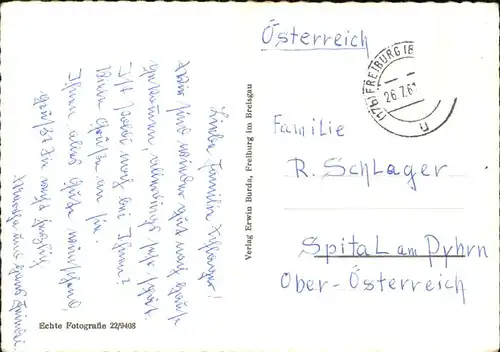 Österreich
(17b) FREIBURG (B
26.7.61
n
Familie
R. Schlager
Spital am Pyhrn
Ober-Österreich
Verlag Erwin Burda, Freiburg im Breisgau
Echte Fotografie 22/9408
Liebe Familie Schlager!
Wir sind wieder gut nach Hause
gekommen, allerdings sehr spät.
Ist Poldi noch bei Ihnen?
Viele Grüße an sie.
Ihnen alles Gute wünschend
grüßt Sie recht herzlich